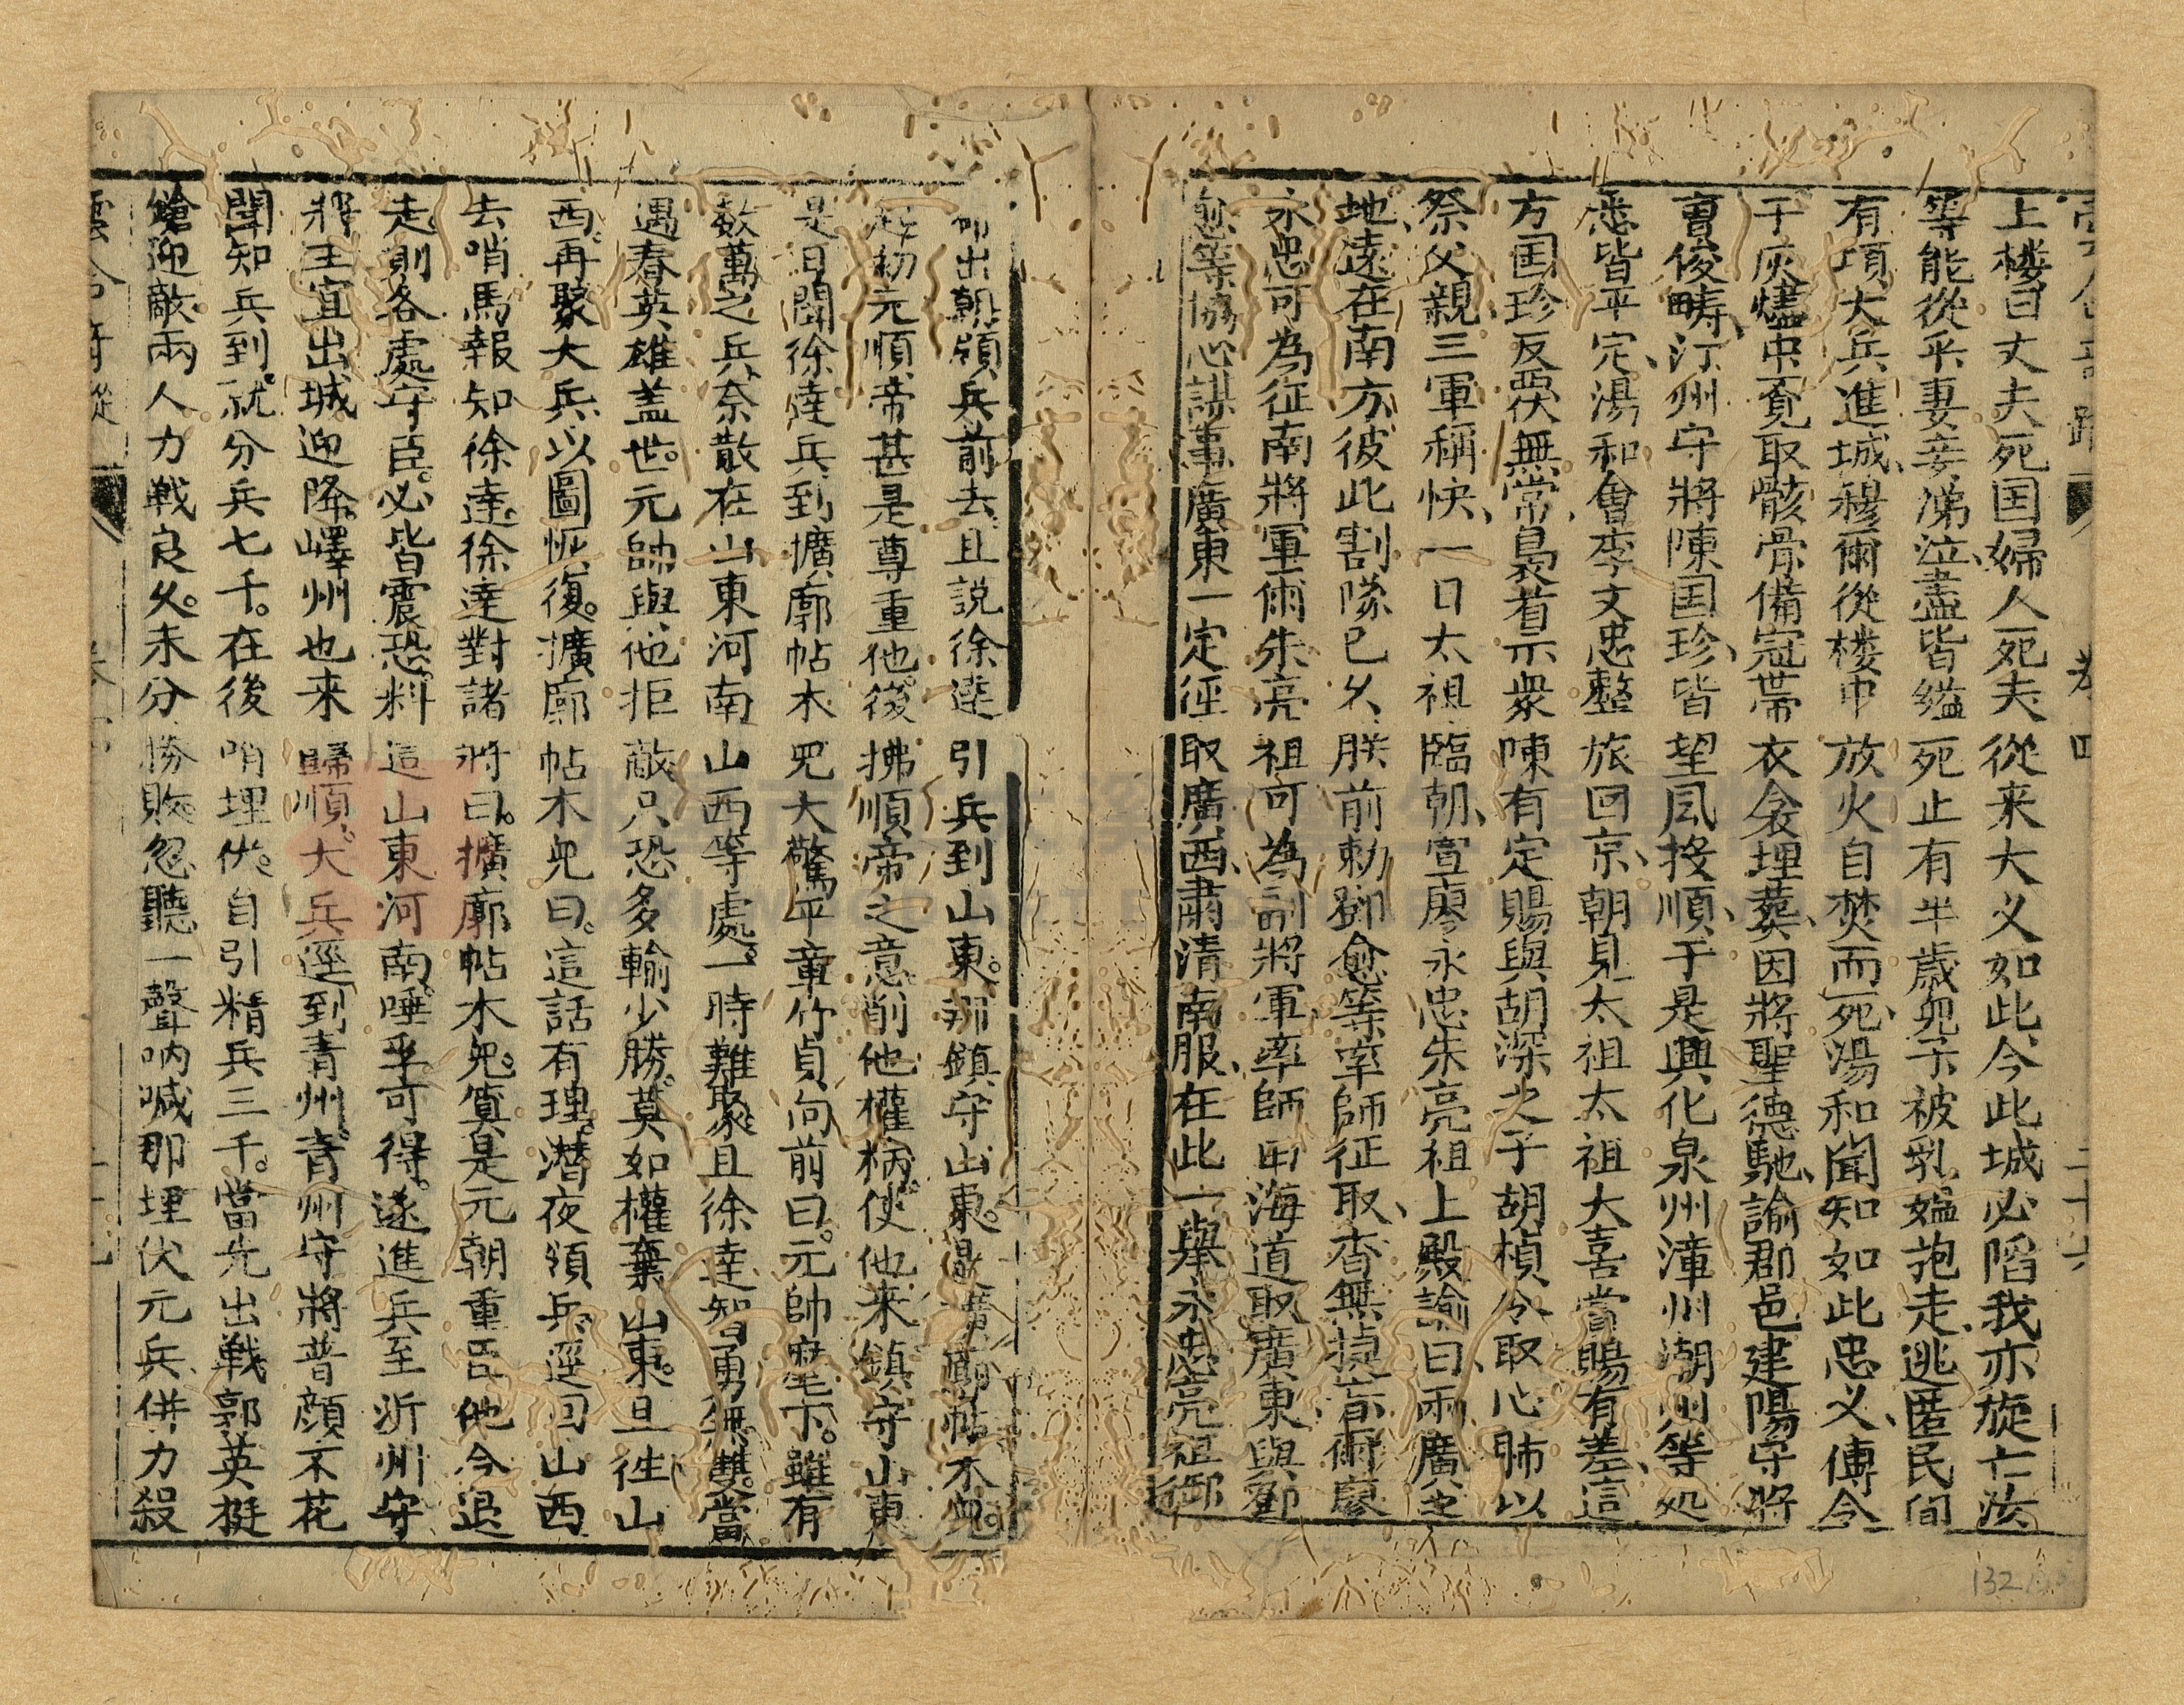 上楼曰丈夫死国婦人死夫從来大义如此今此城必陷我亦旋亡汝
等能從乎妻妾涕泣盡皆縊死止有半歲兒子被乳媪抱走逃匿民间
有項大兵進城穆爾從楼中放火自焚而死湯和聞知如此忠义傳令
于灰燼中覔取骸骨備冠带衣衾埋葬因將聖德馳諭郡邑建陽守將
曹俊畴汀州守將陳国珍皆望风投順于是興化泉州漳州潮州等処
悉皆平定湯和會李文忠整旅回京朝見太祖太祖大喜賞賜有差這
方国珍反覆無常梟首示衆陳有定賜與胡深之子胡楨令取心肺以
祭父親三軍稱快一日太祖臨朝宣廖永忠朱亮祖上殿諭曰兩廣之
地遠在南方彼此割隊已久朕前勅鄧愈等率師征取杳無捷音爾廖
永忠可為征南將軍爾朱亮祖可為副將軍率師由海道取廣東與鄧
愈等協心謀事廣東一定徑取廣西肅清南服在此一舉永忠亮祖御
命出朝領兵前去且説徐達引兵到山東那鎮守山東是擴廓帖木兒
起初元順帝甚是尊重他後拂順帝之意削他權柄使他来鎮守山東
是日聞徐達兵到擴廓帖木兒大驚平章竹貞向前曰元帥麾下雖有
数萬之兵奈散在山東河南山西等處一時難聚且徐達智勇無雙當
遇春英雄盖世元帥與他拒敵只恐多輸少勝莫如權棄山東且徃山
西再聚大兵以圖恢復擴廓帖木兒曰這話有理潜夜領兵逕回山西
去哨馬報知徐達徐達對諸將曰擴廓帖木兒算是元朝重臣他今退
走則各處守臣必皆震恐料這山東河南唾手可得遂進兵至沂州守
將王宣出城迎降嶧州也来歸順大兵逕到青州青州守將普顔不花
聞知兵到就分兵七千在後哨埋伏自引精兵三千當先出戰郭英挺
鎗迎敵兩人力戰良久未分勝敗忽聽一聲吶喊那埋伏元兵併力殺